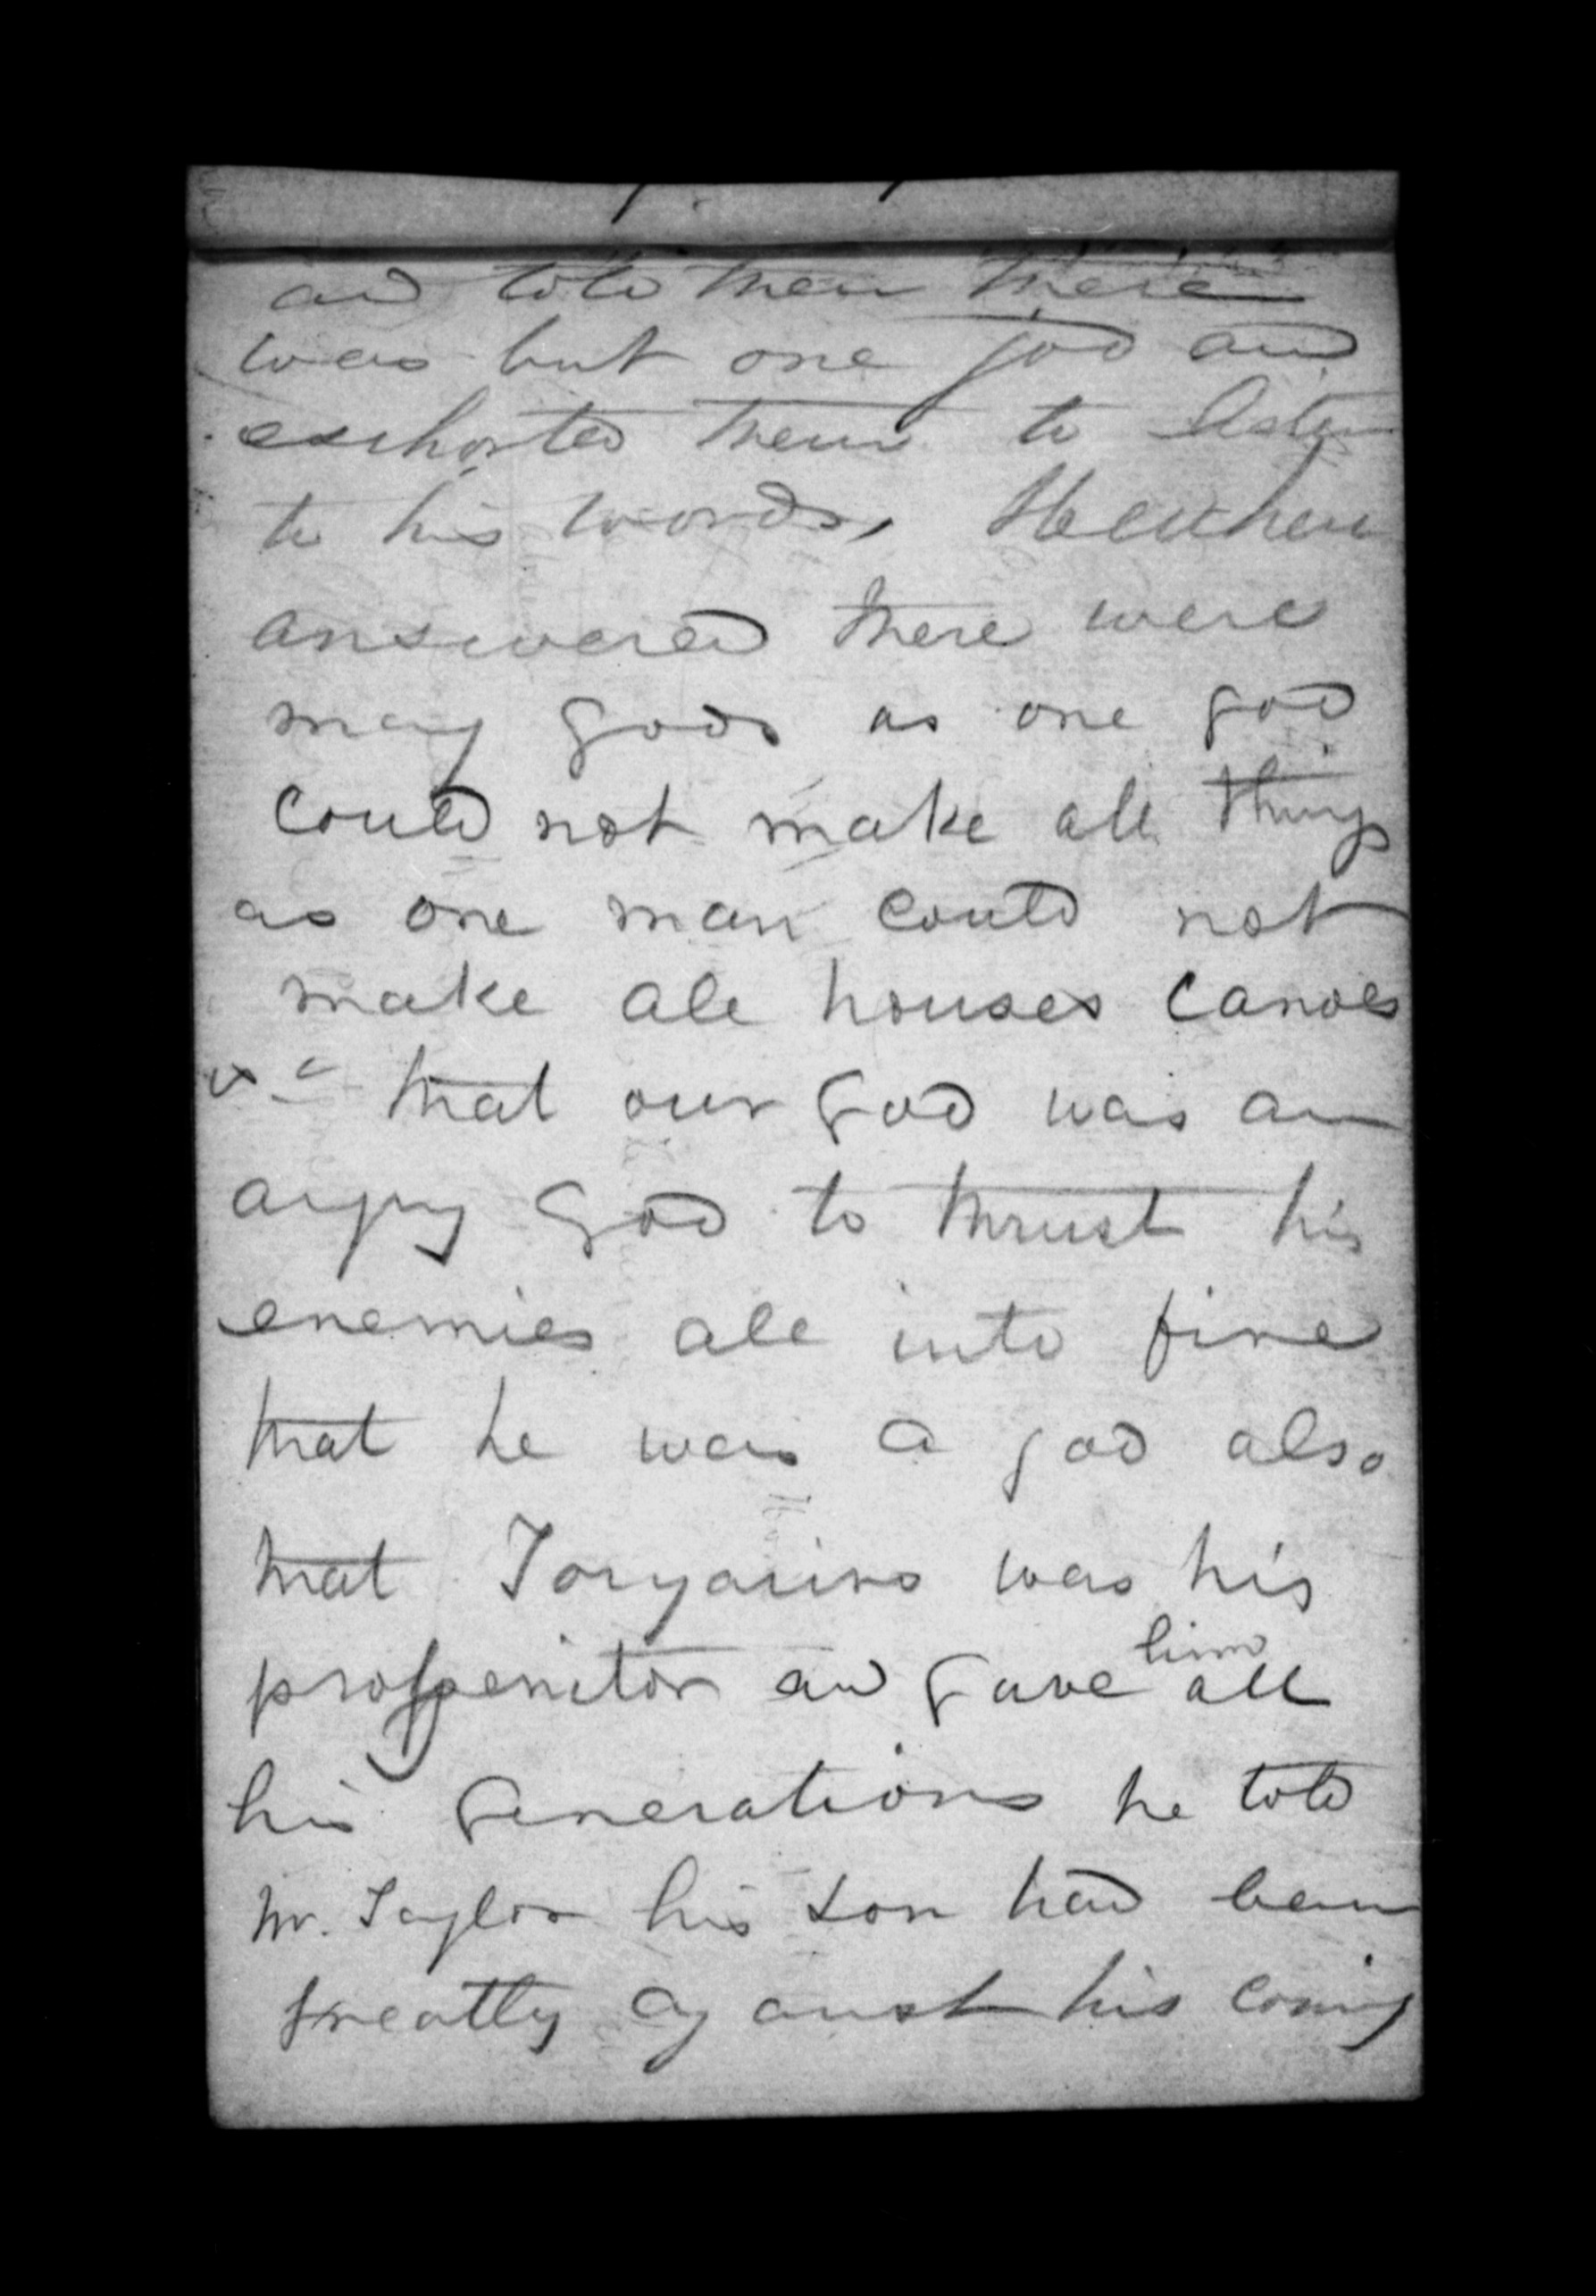 and told them there
was but one god and
exhorted them to listen
to his words, Heuheu
answered there were
many gods as one god
could not make all things
as one man could not
make all houses canoes
&c that our god was an
angry god to thrust his
enemies all into fire
that he was a god also
that Tongariro was his
progenitor and gave him all
his generations he told
Mr. Taylor his son had been
greatly against his coming